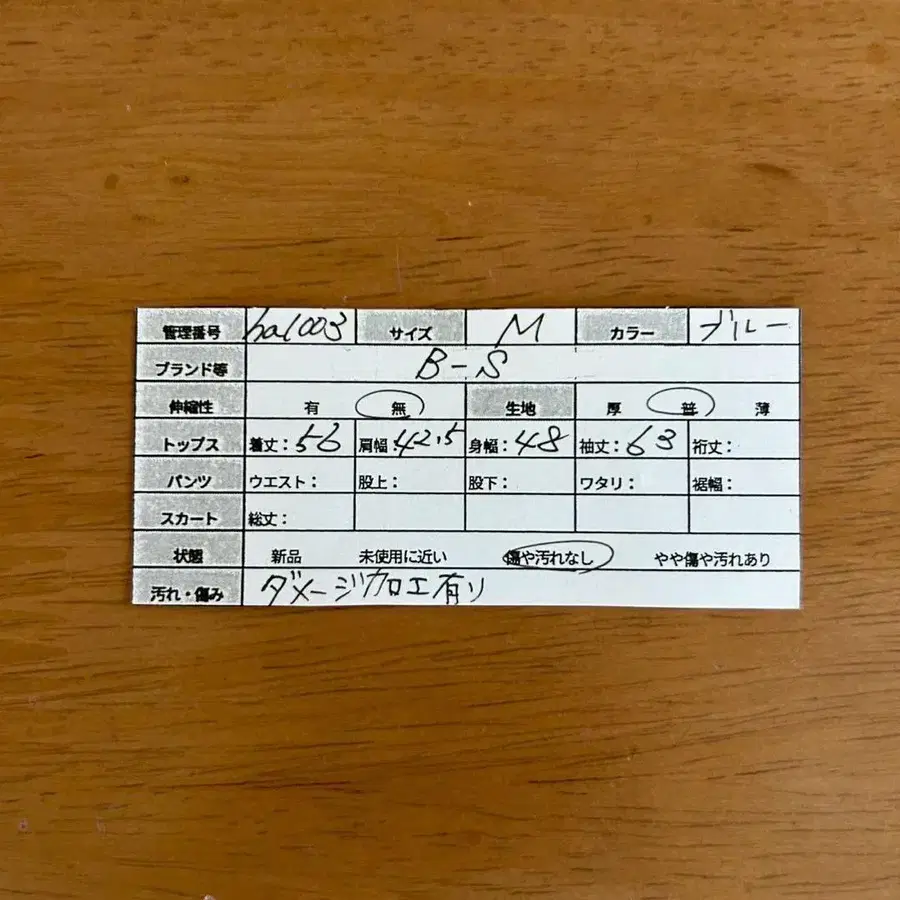 管理番号 ha1003 サイズ M カラー ブルー
ブランド等 B-S
伸縮性 有 無 生地 厚 普 薄
トップス 着丈:56 肩幅:42.5 身幅:48 袖丈:63 裄丈:
パンツ ウエスト: 股上: 股下: ワタリ: 裾幅:
スカート 総丈:
状態 新品 未使用に近い 傷や汚れなし やや傷や汚れあり
汚れ・傷み ダメージ加工有り